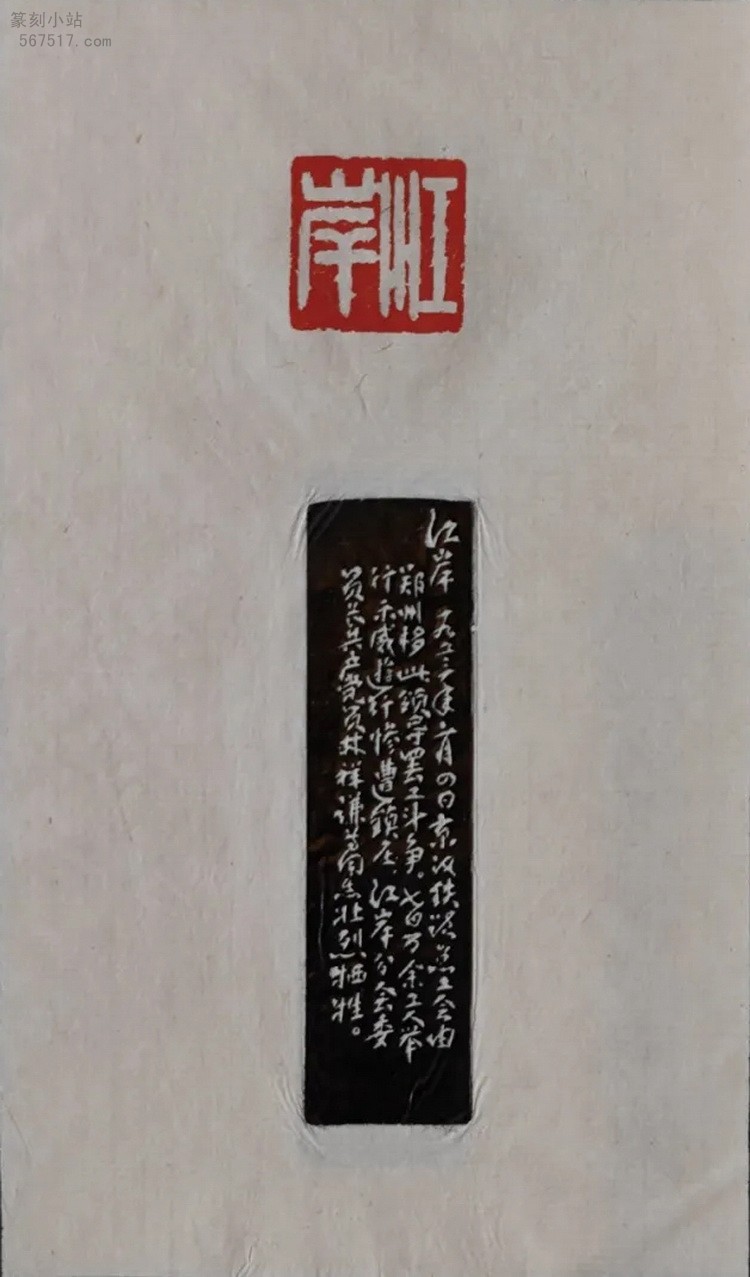 篆刻小站
567517.com
江岸
江岸 一九二三年二月四日京汉铁路总工会由
郑州移此领导罢工斗争。七日万余工人举
行示威游行惨遭镇压,江岸分会委
员长共产党员林祥谦等同志壮烈牺牲。